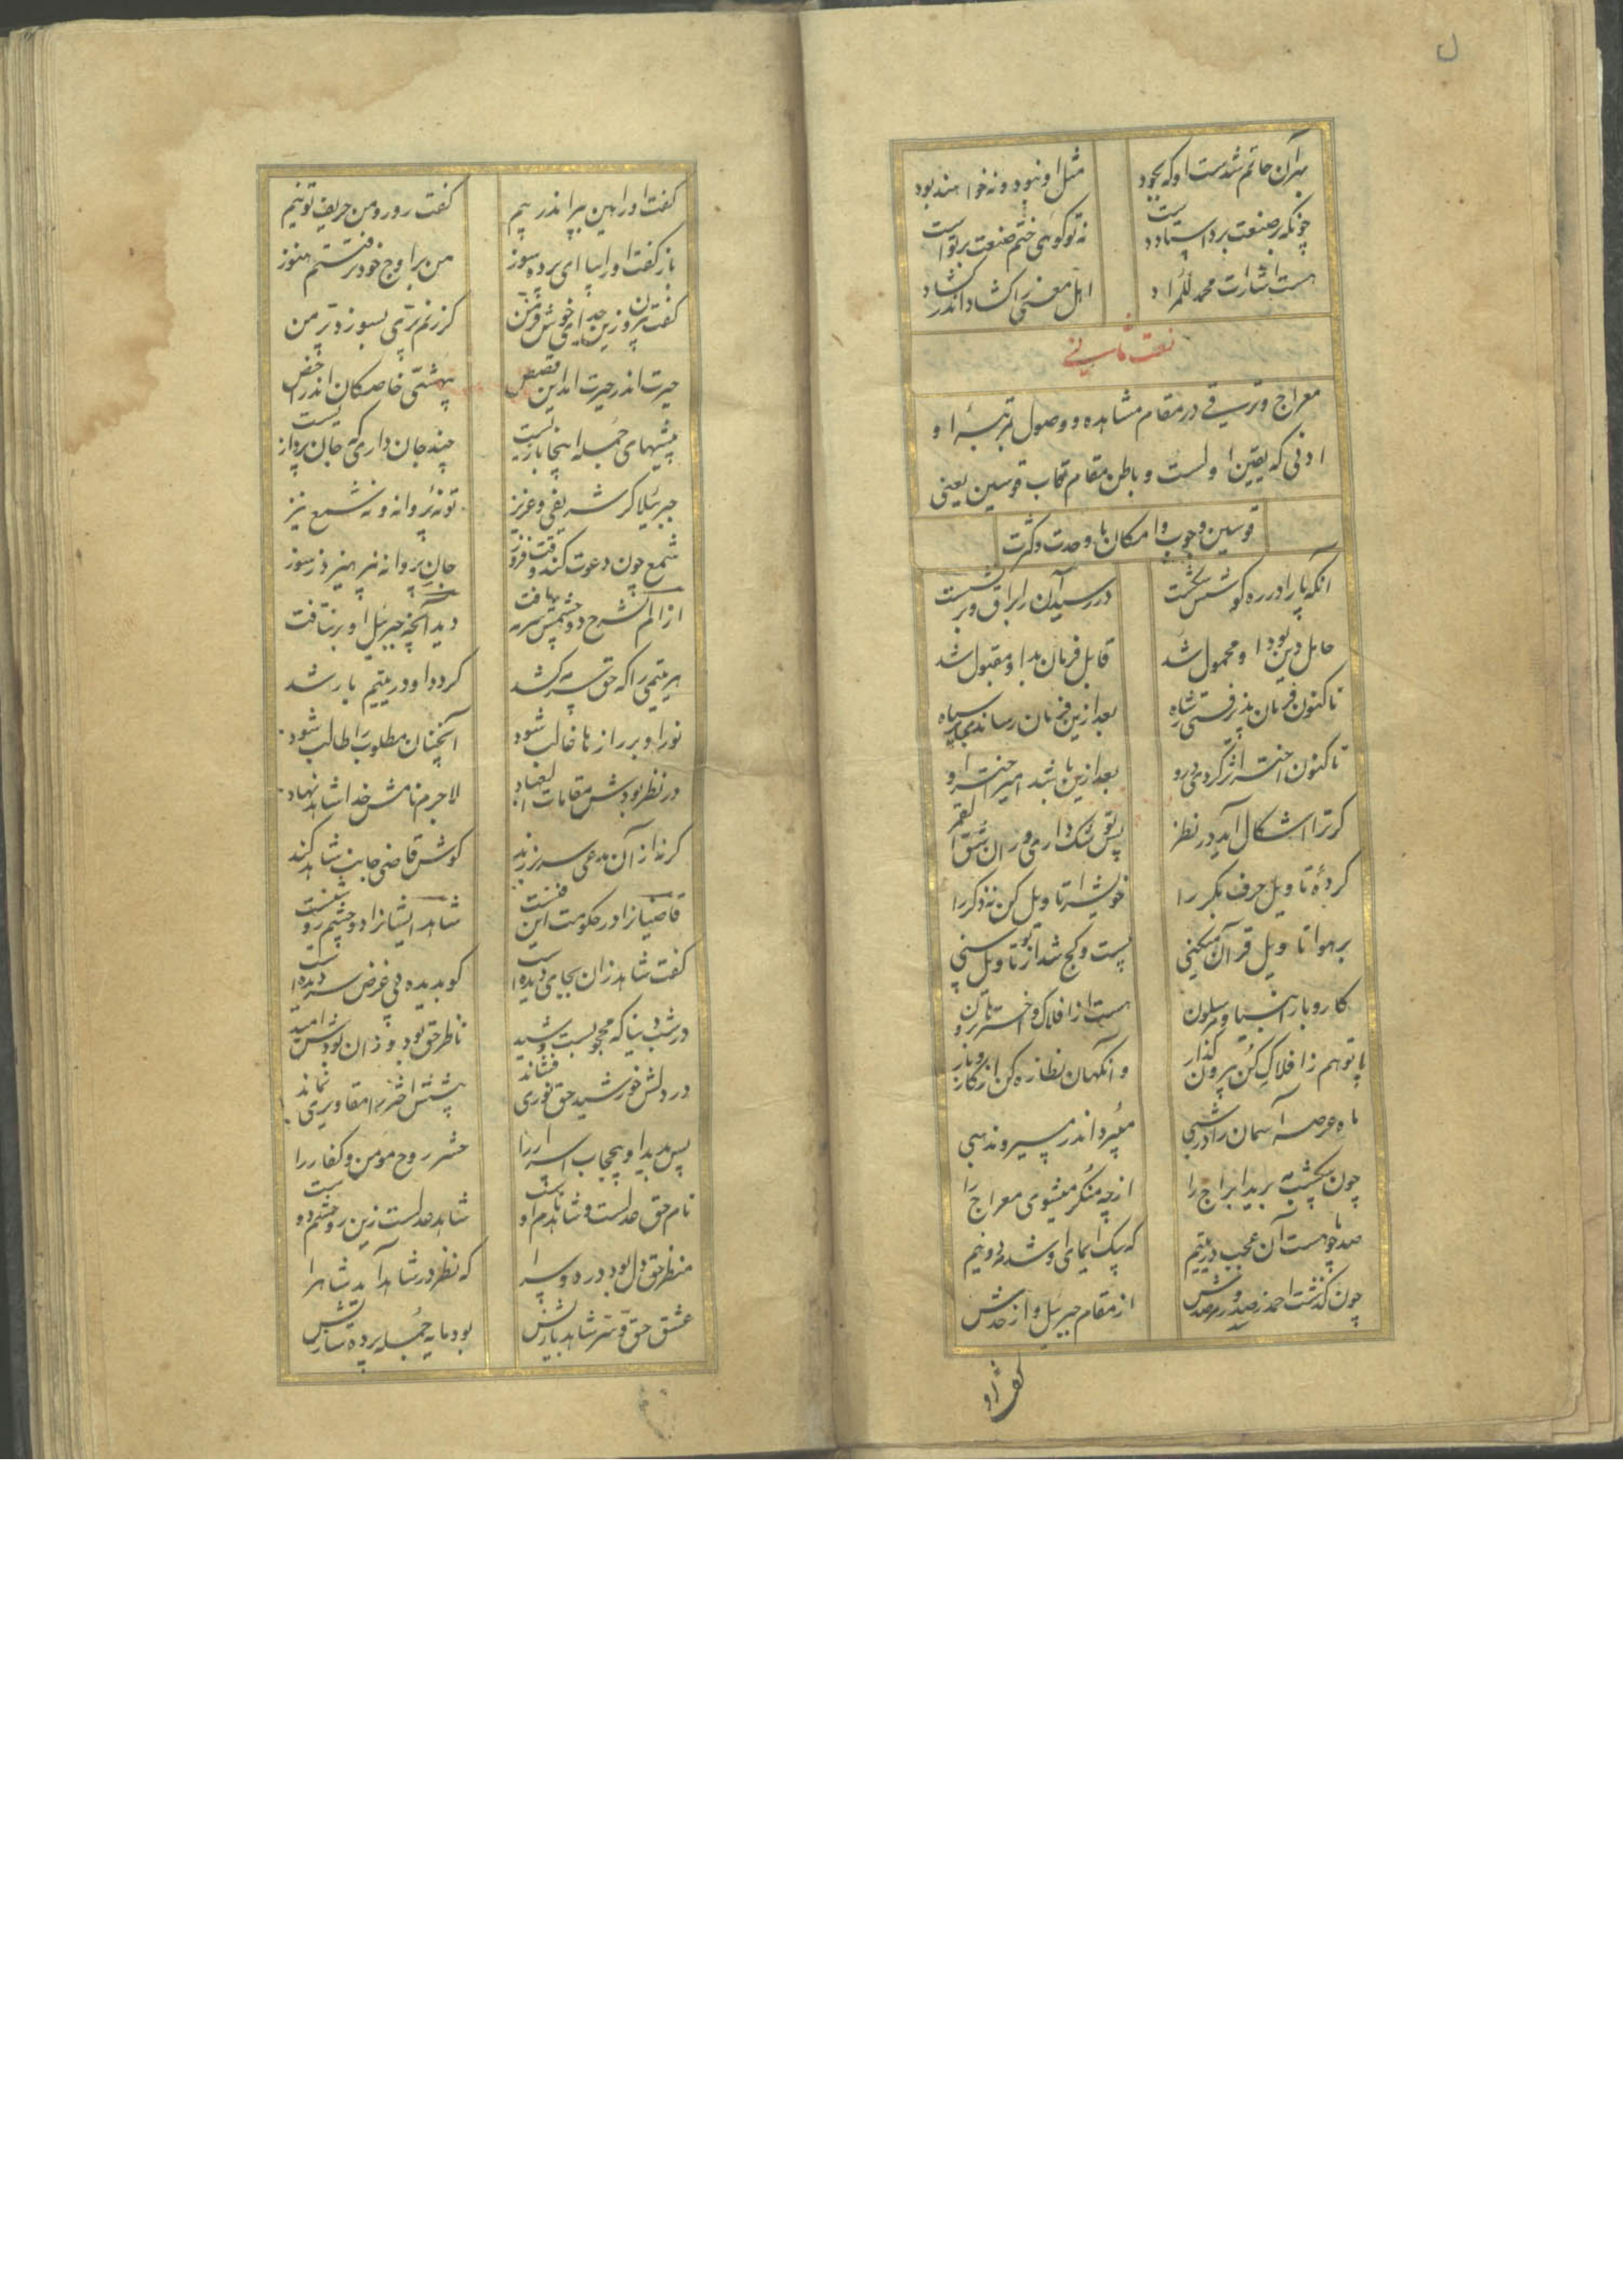 بهر آن خاتم شدست او که بجود
مثل او نبود و نه خواهند بود
چونکه در صنعت برد استاد دست
نه تو گوئی ختم صنعت بر تو است
هست اشارات محمد المراد
اهل معنی را گشاد اندر گشاد
نعت ثانی
معراج و ترقی در مقام مشاهده و وصول بمرتبهٔ او
ادنی که یقین اولست و باطن مقام قاب قوسین یعنی
قوسین وجوب و امکان یا وحدت و کثرت
آنکه پا را در ره کوشش شکست
در رسید آن را براق و بر نشست
حامل دین بود او محمول شد
قابل فرمان بد او مقبول شد
تا کنون فرمان پذیرفتی ز شاه
بعد ازین فرمان رساند بر سپاه
تا کنون اختر اثر کردی درو
بعد ازین باشد امیر اختر او
گر ترا اشکال آید در نظر
پس تو شک داری در انشق القمر
کردهٔ تاویل حرف بکر را
خویش را تاویل کن نه ذکر را
بر هوا تاویل قرآن میکنی
پست و کج شد از تو تاویل سنی
کار و بار انبیا و مرسلون
هست از افلاک و اخترها برون
پا تو هم ز افلاک کن بیرون گذار
وانگهان نظاره کن آن کار و بار
ماه عرصه آسمان را در شبی
میبرد اندر مسیر و مذهبی
چون بیکشب مه برید ابراج را
از چه منکر میشوی معراج را
صد چو ماهست آن عجب در یتیم
که بیک ایمای او شد مه دو نیم
چون گذشت احمد ز سدره و مرصدش
از مقام جبرئیل و از حدش
گفت او
گفت او را هین بپر اندر پیم
گفت رو رو من حریف تو نیم
باز گفت او را بیا ای پرده سوز
من بر اوج خود نرفتستم هنوز
گفت بیرون زین حد ای خوش فر من
گر زنم پری بسوزد پر من
حیرت اندر حیرت آمد این قصص
بیهشی خاصگان اندر اخص
بیهشیهای جمله اینجا بازیست
چند جان داری که جان پردازیست
جبرئیلا گر شریفی و عزیز
تو نهٔ پروانه و نه شمع نیز
شمع چون دعوت کند وقت فروز
جان پروانه نپرهیزد ز سوز
از الم نشرح دو چشمش سرمه یافت
دید آنچه جبرئیل او بر نتافت
هر یتیمی را که حق سرمه کشد
گردد او در یتیم با رشد
نور او بر رازها غالب شود
آنچنان مطلوب را طالب شود
در نظر بودش مقامات العباد
لاجرم نامش خدا شاهد نهاد
گر هزاران مدعی سر بر زند
گوش قاضی جانب شاهد کند
قاضیانرا در حکومت این فنست
شاهد ایشانرا دو چشم روشنست
گفت شاهد زان بجای دیده است
کو بدیده بی غرض سر دیده است
در شب دنیا که محجوبست شید
ناظر حق بود و زان بودش امید
در دلش خورشید حق نوری فشاند
پیشش اختر را مقادیری نماند
پس بدید او بیحجاب اسرار را
حشر روح مومن و کفار را
نام حق عدلست و شاهد هم او است
شاهد عدلست زین رو چشم دوست
منظر حق دل بود در دو سرا
که نظر در شاهد آید شاه را
عشق حق و سر شاهد بازیش
بود مایه جمله پرده سازیش